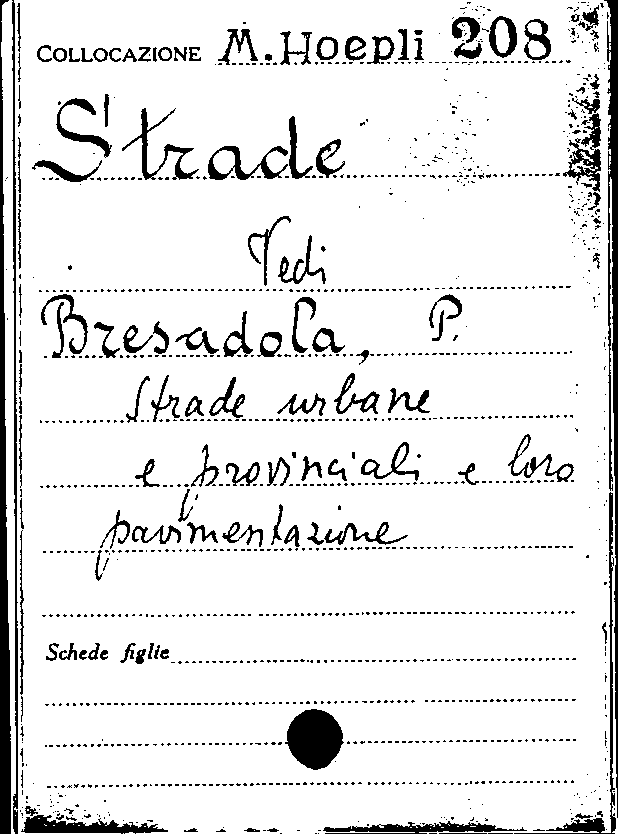 COLLOCAZIONE M. Hoepli 208
Strade
Vedi
Bresadola, P.
Strade urbane
e provinciali e loro
pavimentazione
Schede figlie